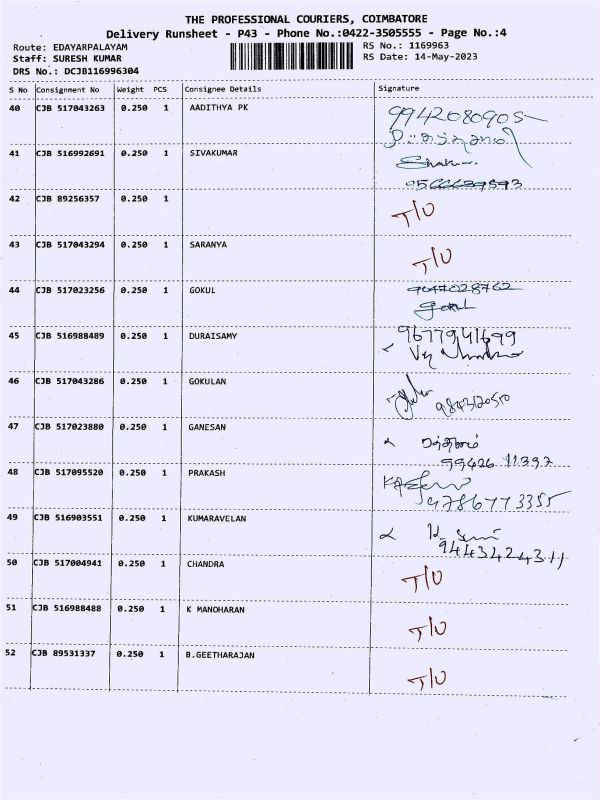 THE PROFESSIONAL COURIERS, COIMBATORE
Delivery Runsheet - P43 - Phone No.:0422-3505555 - Page No.:4
Route: EDAYARPALAYAM RS No.: 1169963
Staff: SURESH KUMAR RS Date: 14-May-2023
DRS No.: DCJB116996304
S No Consignment No Weight PCS Consignee Details Signature
40 CJB 517043263 0.250 1 AADITHYA PK 9942080905
41 CJB 516992691 0.250 1 SIVAKUMAR
42 CJB 89256357 0.250 1 T/U
43 CJB 517043294 0.250 1 SARANYA T/U
44 CJB 517023256 0.250 1 GOKUL
Gokul
45 CJB 516988489 0.250 1 DURAISAMY 9677941699
46 CJB 517043286 0.250 1 GOKULAN
47 CJB 517023880 0.250 1 GANESAN
99426 11397
48 CJB 517095520 0.250 1 PRAKASH
9786773355
49 CJB 516903551 0.250 1 KUMARAVELAN
9443424311
50 CJB 517004941 0.250 1 CHANDRA T/U
51 CJB 516988488 0.250 1 K MANOHARAN T/U
52 CJB 89531337 0.250 1 B.GEETHARAJAN T/U